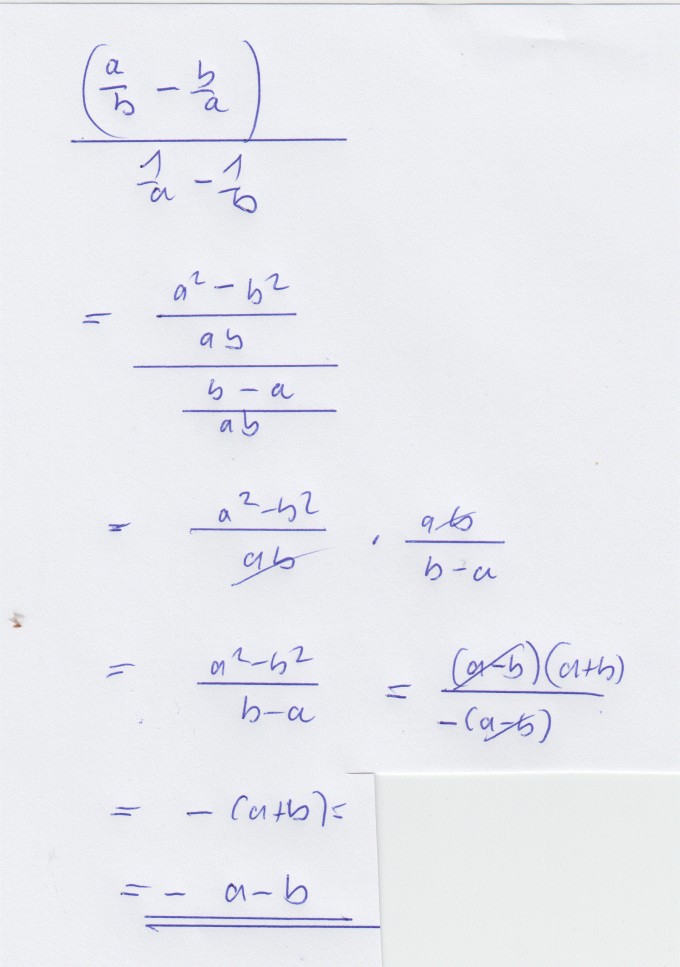 (a/b - b/a)
1/a - 1/b
= a² - b²
ab
b - a
ab
= a² - b²/ab · ab/b - a
= a² - b²/b - a = (a - b)(a + b)/-(a - b)
= - (a + b) =
= - a - b